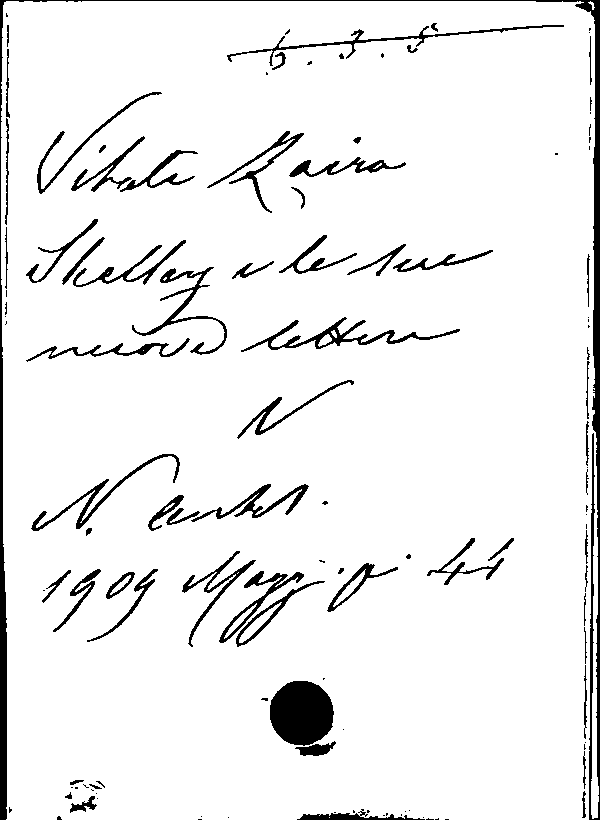 6.3.5
Vitale Zaira
Shelley e le sue
nuove lettere
N
N. Antol.
1909 Magg. p. 44